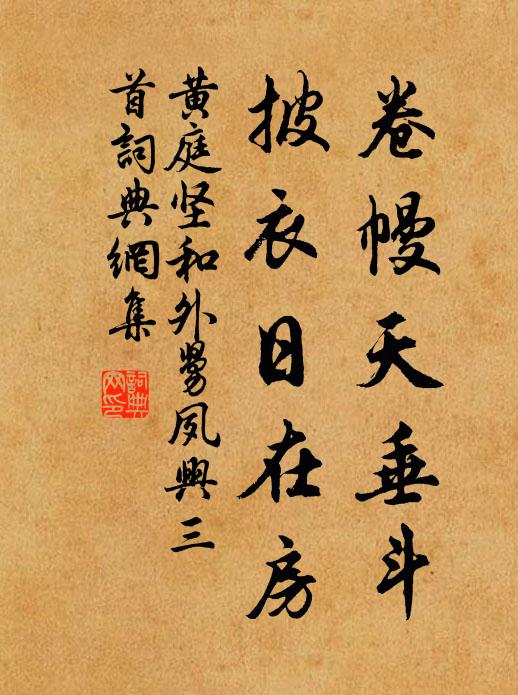 卷幔天垂斗
披衣日在房
黄庭坚和外舅夙興三
首詞典網集
詞典
网印